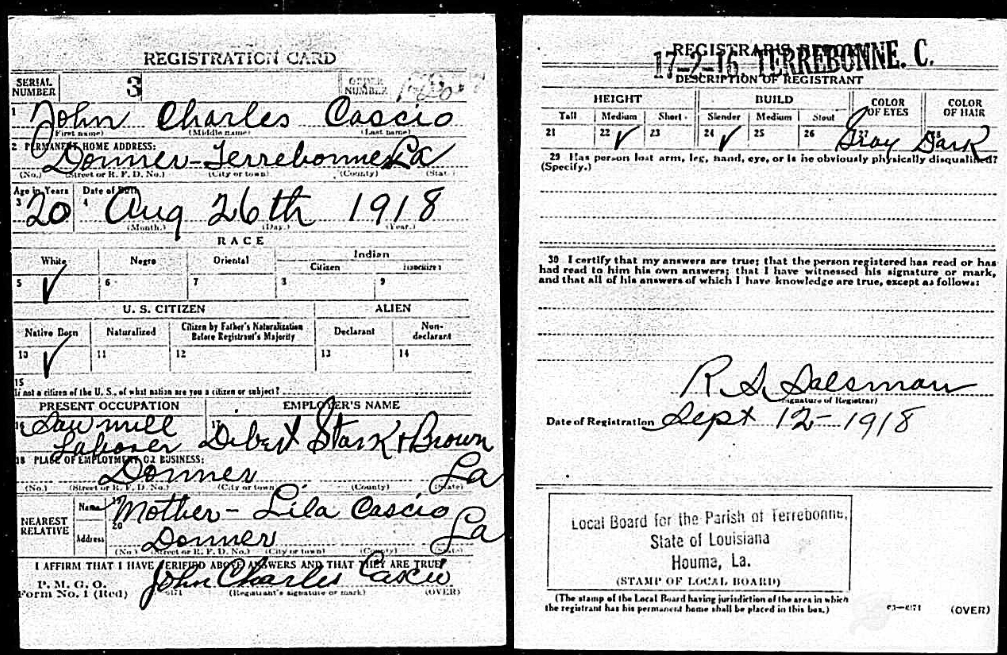 REGISTRATION CARD
SERIAL NUMBER 3 ORDER NUMBER
1 John Charles Cascio
(First name) (Middle name) (Last name)
2 PERMANENT HOME ADDRESS:
Donner-Terrebonne La
(No.) (Street or R. F. D. No.) (City or town) (County) (State)
Age in Years Date of Birth
3 20 4 Aug 26th 1918
(Month.) (Day.) (Year.)
RACE
White Negro Oriental Indian
Citizen Noncitizen
5 ✓ 6 7 8 9
U. S. CITIZEN ALIEN
Native Born Naturalized Citizen by Father's Naturalization Before Registrant's Majority Declarant Non-declarant
10 ✓ 11 12 13 14
15
If not a citizen of the U. S., of what nation are you a citizen or subject?
PRESENT OCCUPATION EMPLOYER'S NAME
16 Saw mill Laborer 17 Dibert Stark & Brown
18 PLACE OF EMPLOYMENT OR BUSINESS:
Donner La
(No.) (Street or R. F. D. No.) (City or town) (County) (State)
NEAREST RELATIVE Name 19 Mother- Lila Cascio
Address 20 Donner La
(No.) (Street or R. F. D. No.) (City or town) (County) (State)
I AFFIRM THAT I HAVE VERIFIED ABOVE ANSWERS AND THAT THEY ARE TRUE
P. M. G. O.
Form No. 1 (Red) John Charles Cascio
(Registrant's signature or mark) (OVER)
REGISTRAR'S
17-2-16 TERREBONNE. C.
DESCRIPTION OF REGISTRANT
HEIGHT BUILD COLOR OF EYES COLOR OF HAIR
Tall Medium Short Slender Medium Stout
21 22 ✓ 23 24 ✓ 25 26 27 Gray 28 Dark
29 Has person lost arm, leg, hand, eye, or is he obviously physically disqualified?
(Specify.)
30 I certify that my answers are true; that the person registered has read or has
had read to him his own answers; that I have witnessed his signature or mark,
and that all of his answers of which I have knowledge are true, except as follows:
R. S. Salsman
(Signature of Registrar)
Date of Registration Sept 12-1918
Local Board for the Parish of Terrebonne,
State of Louisiana
Houma, La.
(STAMP OF LOCAL BOARD)
(The stamp of the Local Board having jurisdiction of the area in which
the registrant has his permanent home shall be placed in this box.)
03—6171 (OVER)